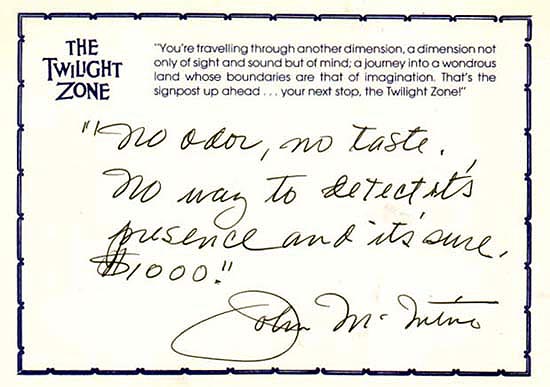 THE
TWILIGHT
ZONE
"You're travelling through another dimension, a dimension not
only of sight and sound but of mind; a journey into a wondrous
land whose boundaries are that of imagination. That's the
signpost up ahead . . . your next stop, the Twilight Zone!"
"No odor, no taste.
No way to detect it's
presence and it's sure,
$1000."
John Mc